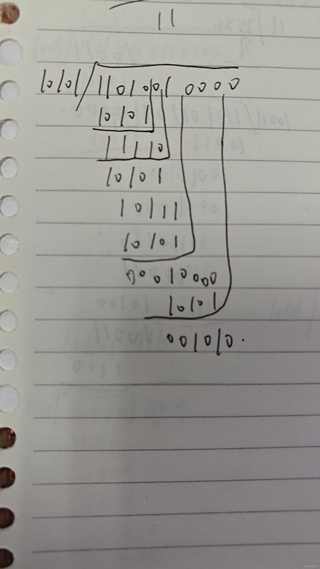 11
10101/1101001 0000
10101
11110
10101
10111
10101
00001000
10101
001010.